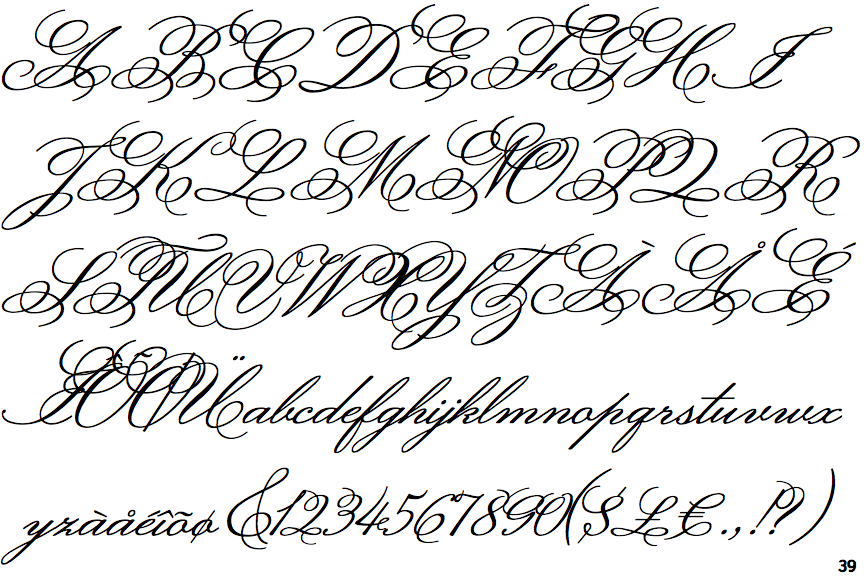 ABCDEFGHI
JKLMNOPQR
STUVWXYZÀÅÉ
ÎÕØÜabcdefghijklmnopqrstuvwx
yzàåéîõø&1234567890($£€.,!?)
39